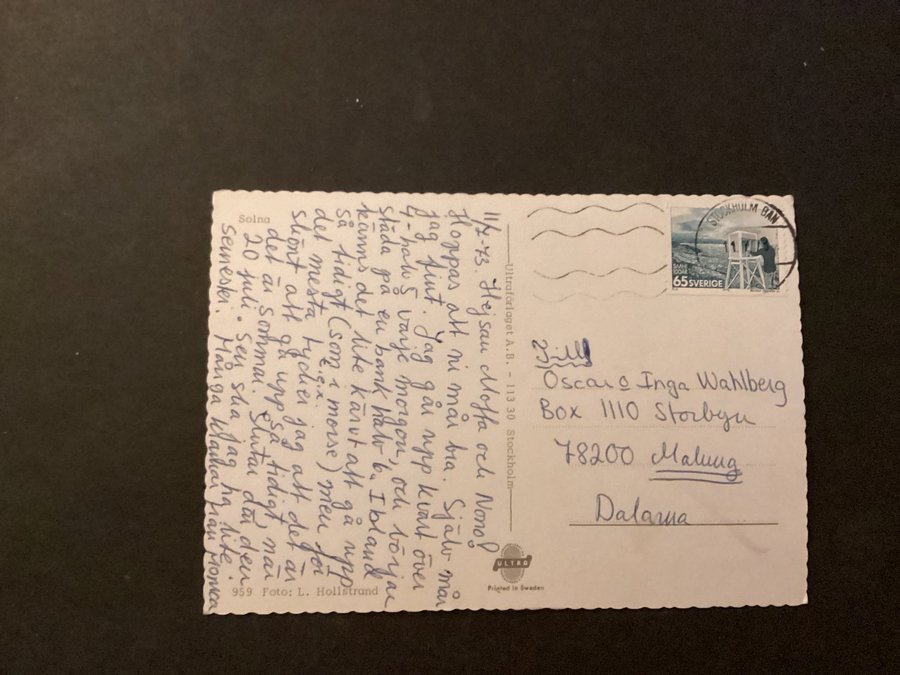 Solna
11/7-73. Hejsan Moffa och Nono!
Hoppas att ni mår bra. Själv mår
jag fint. Jag går upp kvart över
4-halv 5 varje morgon, och börjar
städa på en bank halv 6. Ibland
känns det lite kärvt att gå upp
så tidigt (som t.ex. i morse) men för
det mesta tycker jag att det är
skönt att gå upp så tidigt, när
det är sommar. Slutar där den
20 juli. Sen ska jag ha lite
semester. Många kramar från Monica
959 Foto: L. Hollstrand
Ultraförlaget A.B. - 113 30 Stockholm
ULTRA
Printed in Sweden
STOCKHOLM BAN
65 SVERIGE
Till
Oscar o Inga Wahlberg
Box 1110 Storbyn
78200 Malung
Dalarna